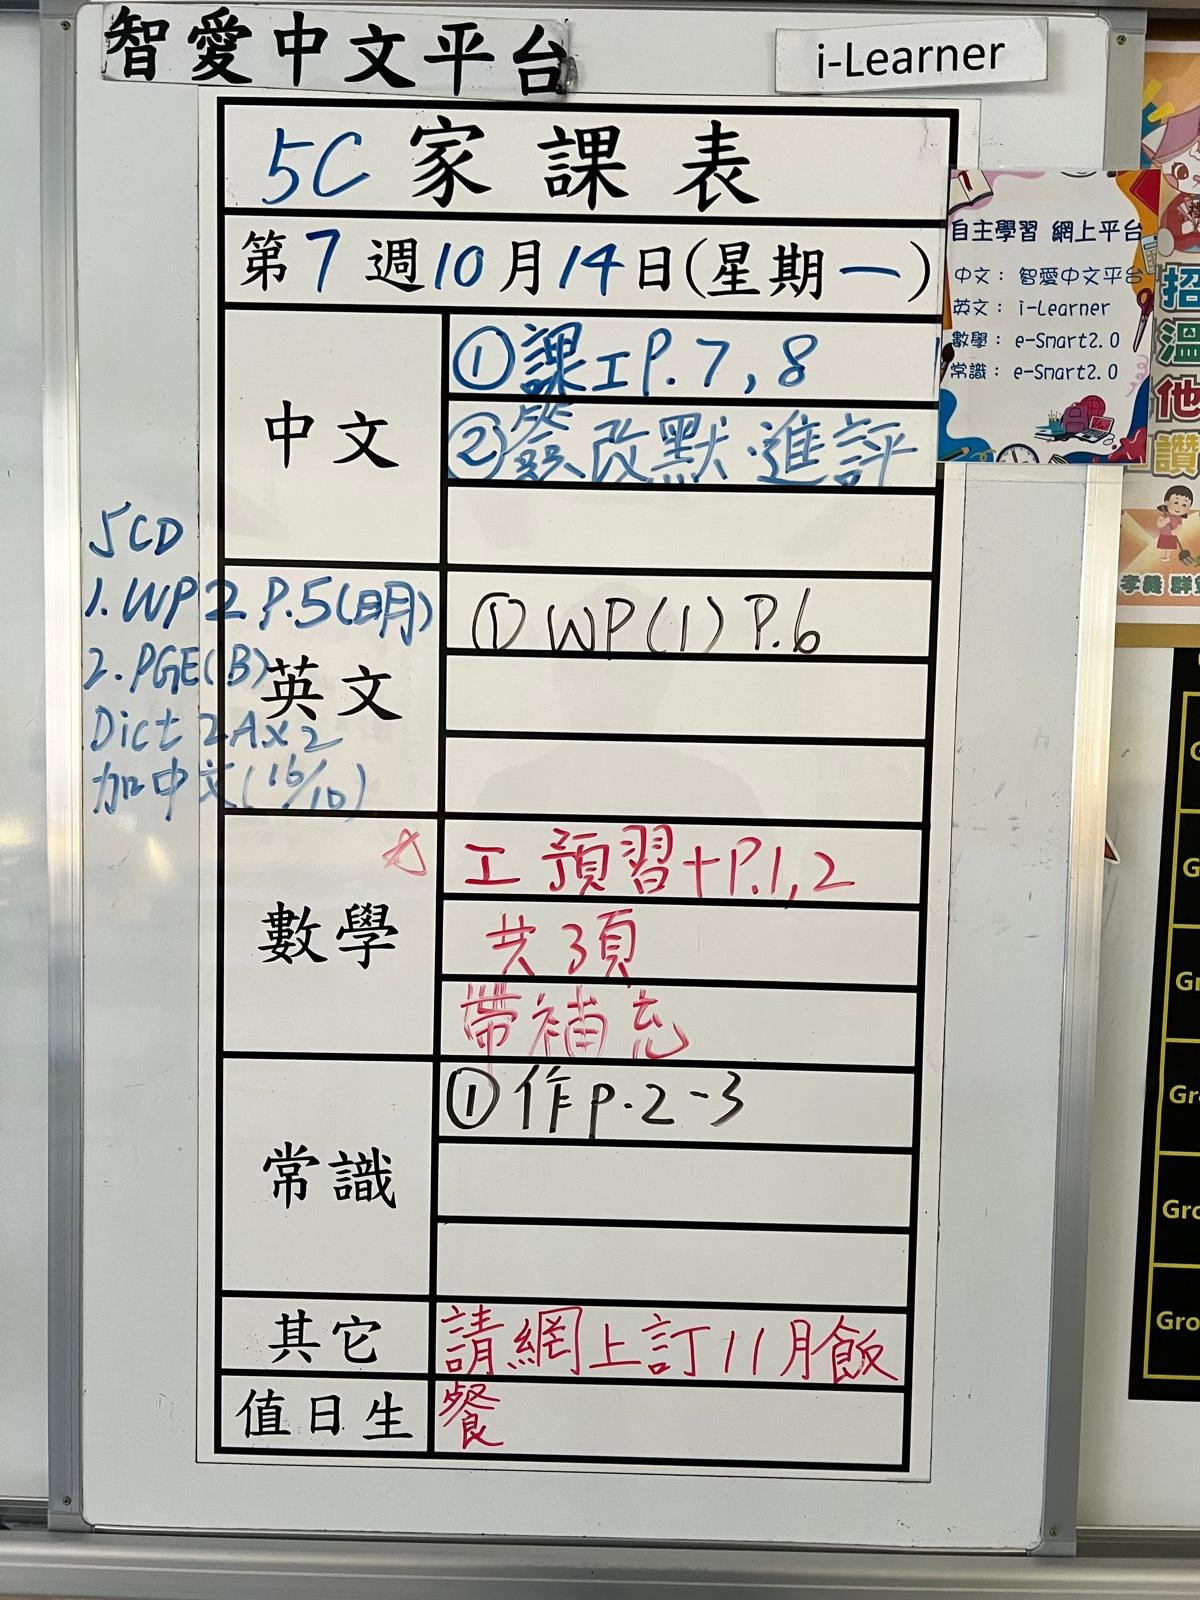 智愛中文平台
i-Learner
5C 家課表
第7週10月14日(星期一)
中文
①課工P.7,8
②簽改默.進評
5CD
1.WP2 P.5(明)
2.PGE(B)
Dict 2A×2
加中文(16/10)
英文
①WP(1) P.6
數學
工預習+P.1,2
共3頁
帶補充
常識
①作p.2-3
其它
請網上訂11月飯
餐
值日生
自主學習 網上平台
中文： 智愛中文平台
英文： i-Learner
數學： e-Smart2.0
常識： e-Smart2.0
招
溫
他
讚
孝義 群
Gro
Gro